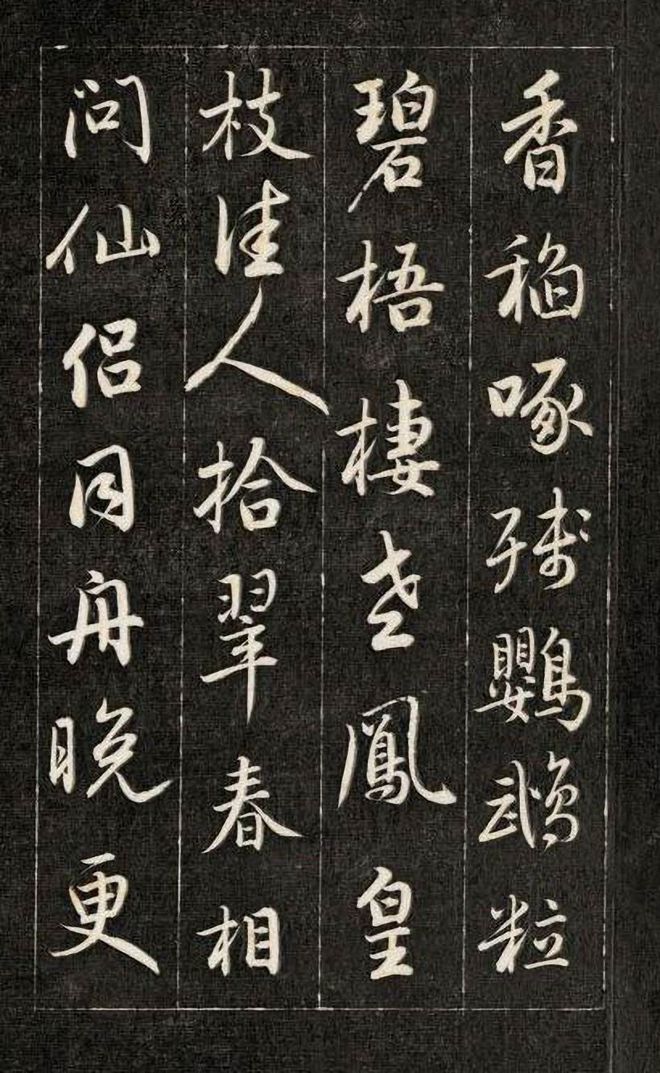 香稻啄残鸚鵡粒
碧梧棲老鳳皇
枝佳人拾翠春相
问仙侣同舟晚更